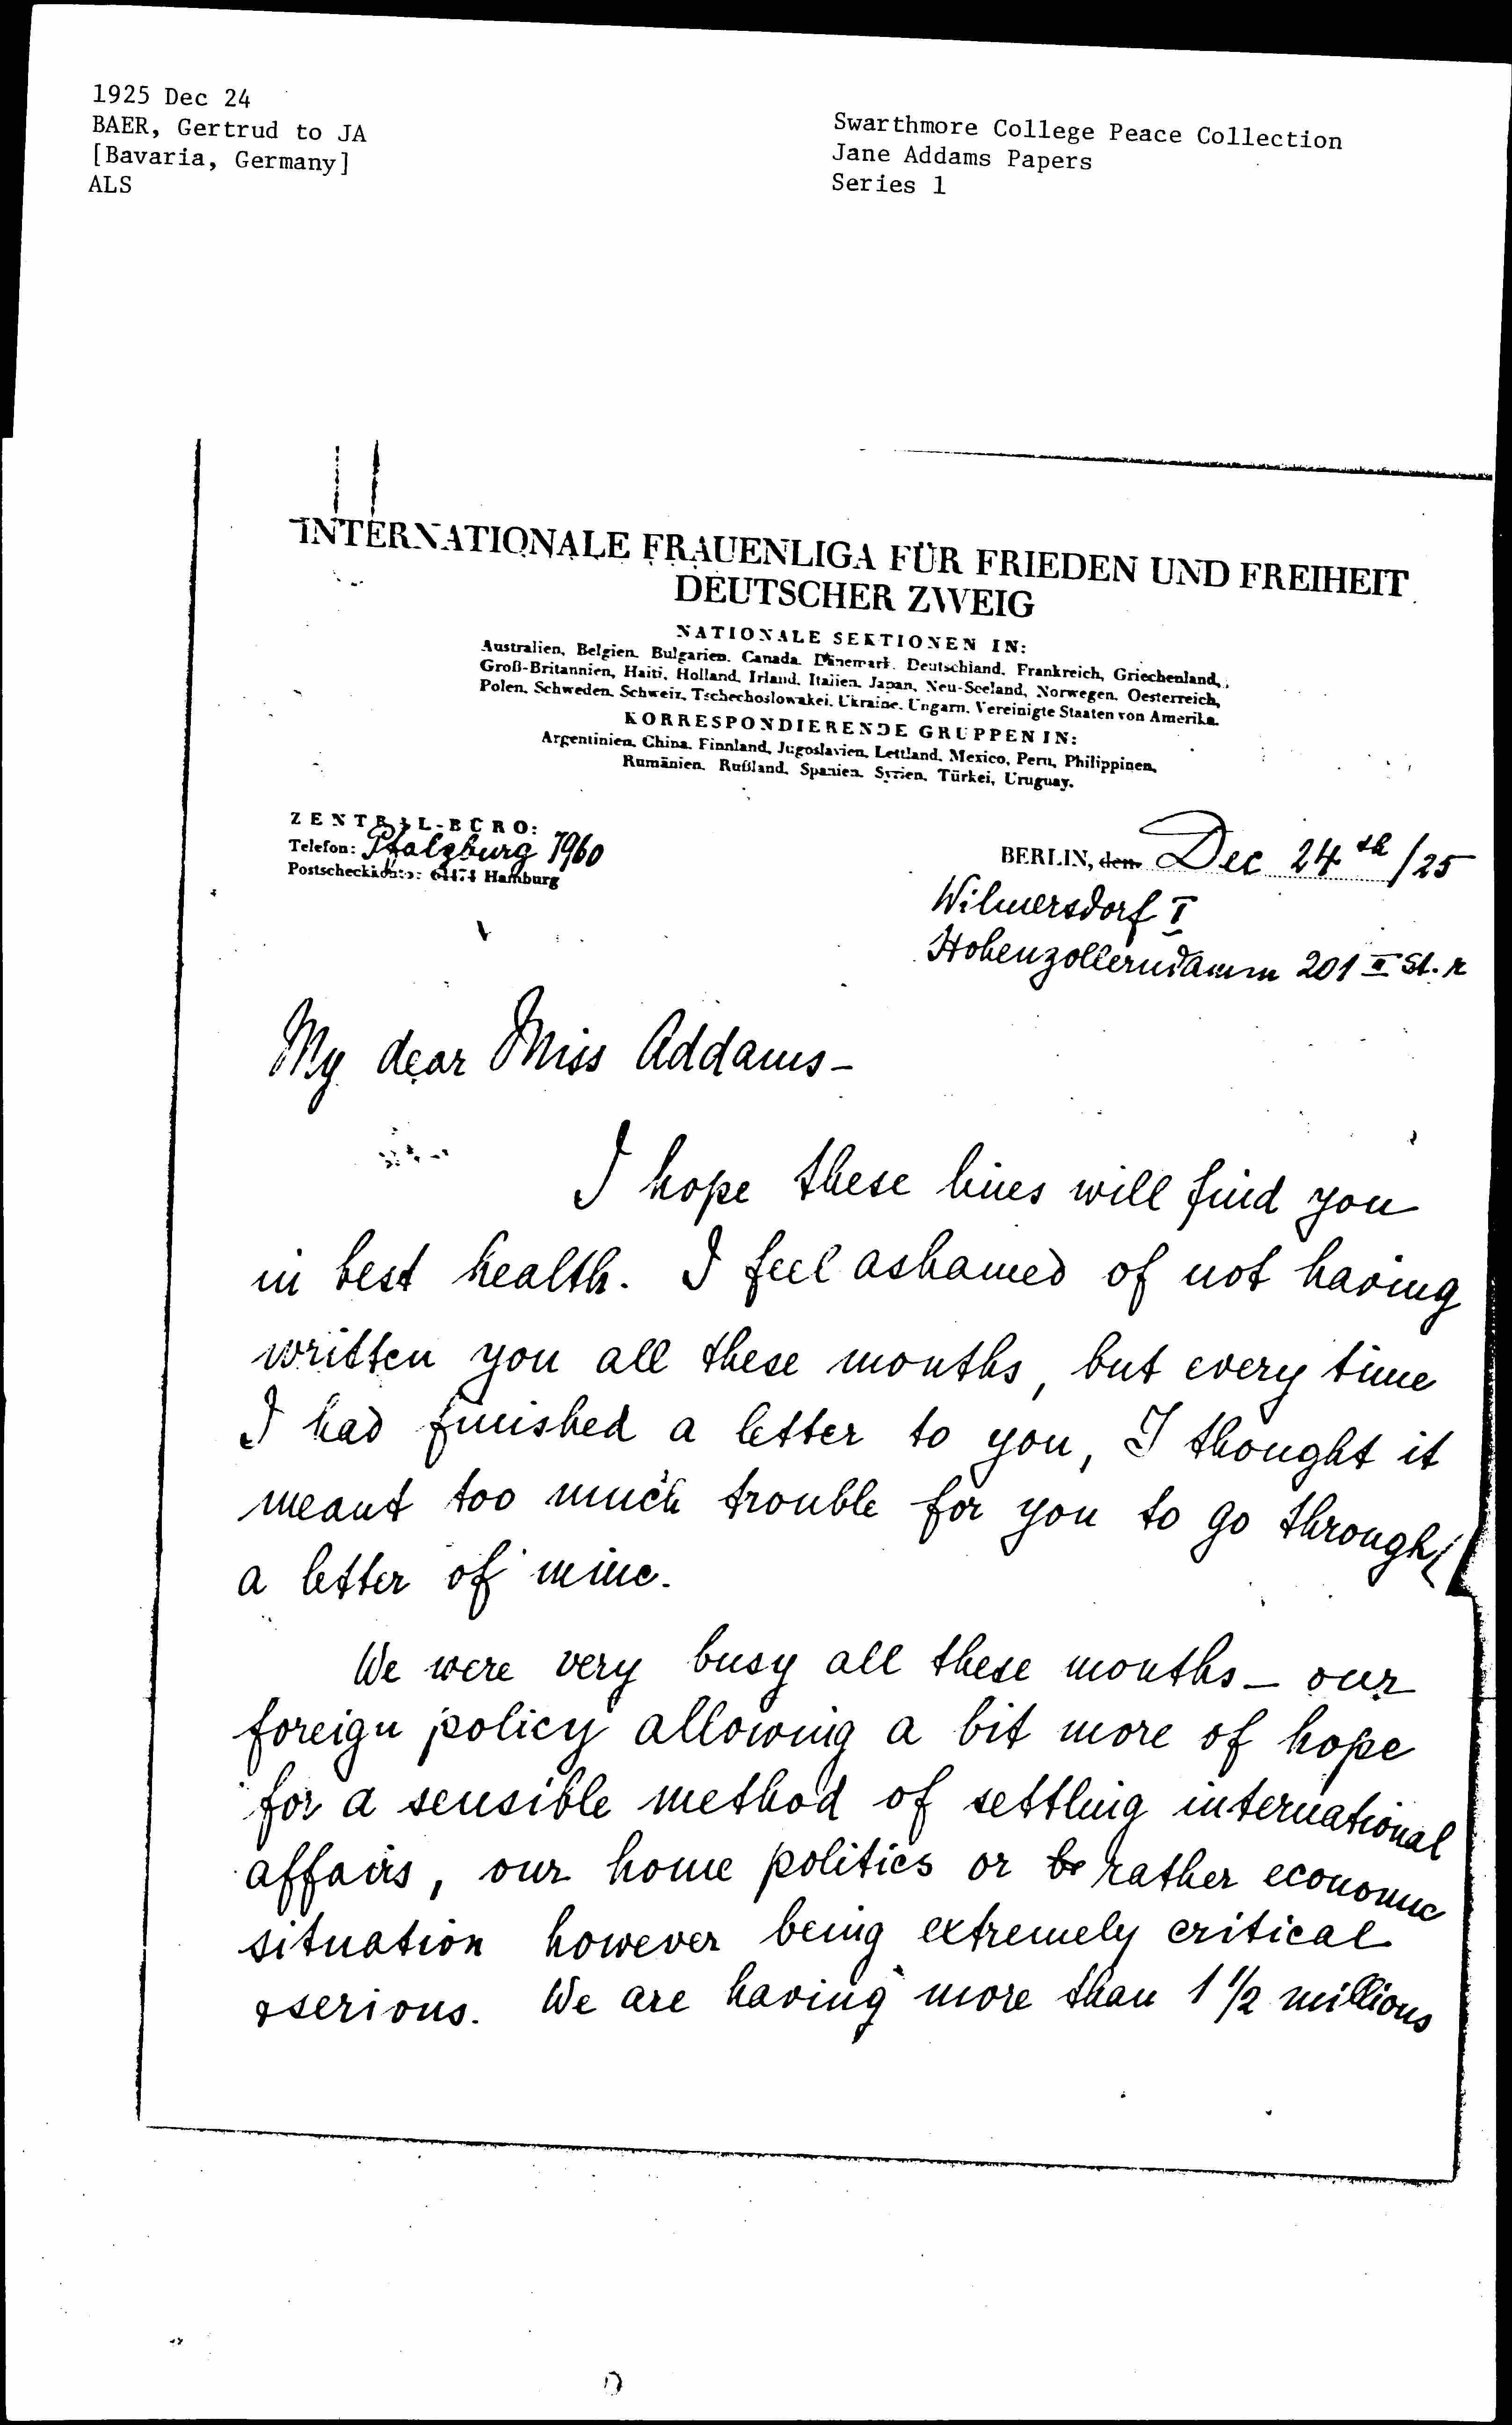 1925 Dec 24
BAER, Gertrud to JA
[Bavaria, Germany]
ALS
Swarthmore College Peace Collection
Jane Addams Papers
Series 1
INTERNATIONALE FRAUENLIGA FÜR FRIEDEN UND FREIHEIT
DEUTSCHER ZWEIG
NATIONALE SEKTIONEN IN:
Australien, Belgien, Bulgarien, Canada, Dänemark, Deutschland, Frankreich, Griechenland,
Groß-Britannien, Haiti, Holland, Irland, Italien, Japan, Neu-Seeland, Norwegen, Oesterreich,
Polen, Schweden, Schweiz, Tschechoslowakei, Ukraine, Ungarn, Vereinigte Staaten von Amerika.
KORRESPONDIERENDE GRUPPEN IN:
Argentinien, China, Finnland, Jugoslavien, Lettland, Mexico, Peru, Philippinen,
Rumänien, Rußland, Spanien, Syrien, Türkei, Uruguay.
ZENTRAL-BÜRO:
Telefon: Pfalzburg 7960
Postscheckkonto: Hamburg
BERLIN, den Dec 24th/25
Wilmersdorf I
Hohenzollerndamm 201 II St. r
My dear Miss Addams-
I hope these lines will find you
in best health. I feel ashamed of not having
written you all these months, but every time
I had finished a letter to you, I thought it
meant too much trouble for you to go through
a letter of mine.
We were very busy all these months - our
foreign policy allowing a bit more of hope
for a sensible method of settling international
affairs, our home politics or be rather economic
situation however being extremely critical
& serious. We are having more than 1 1/2 millions